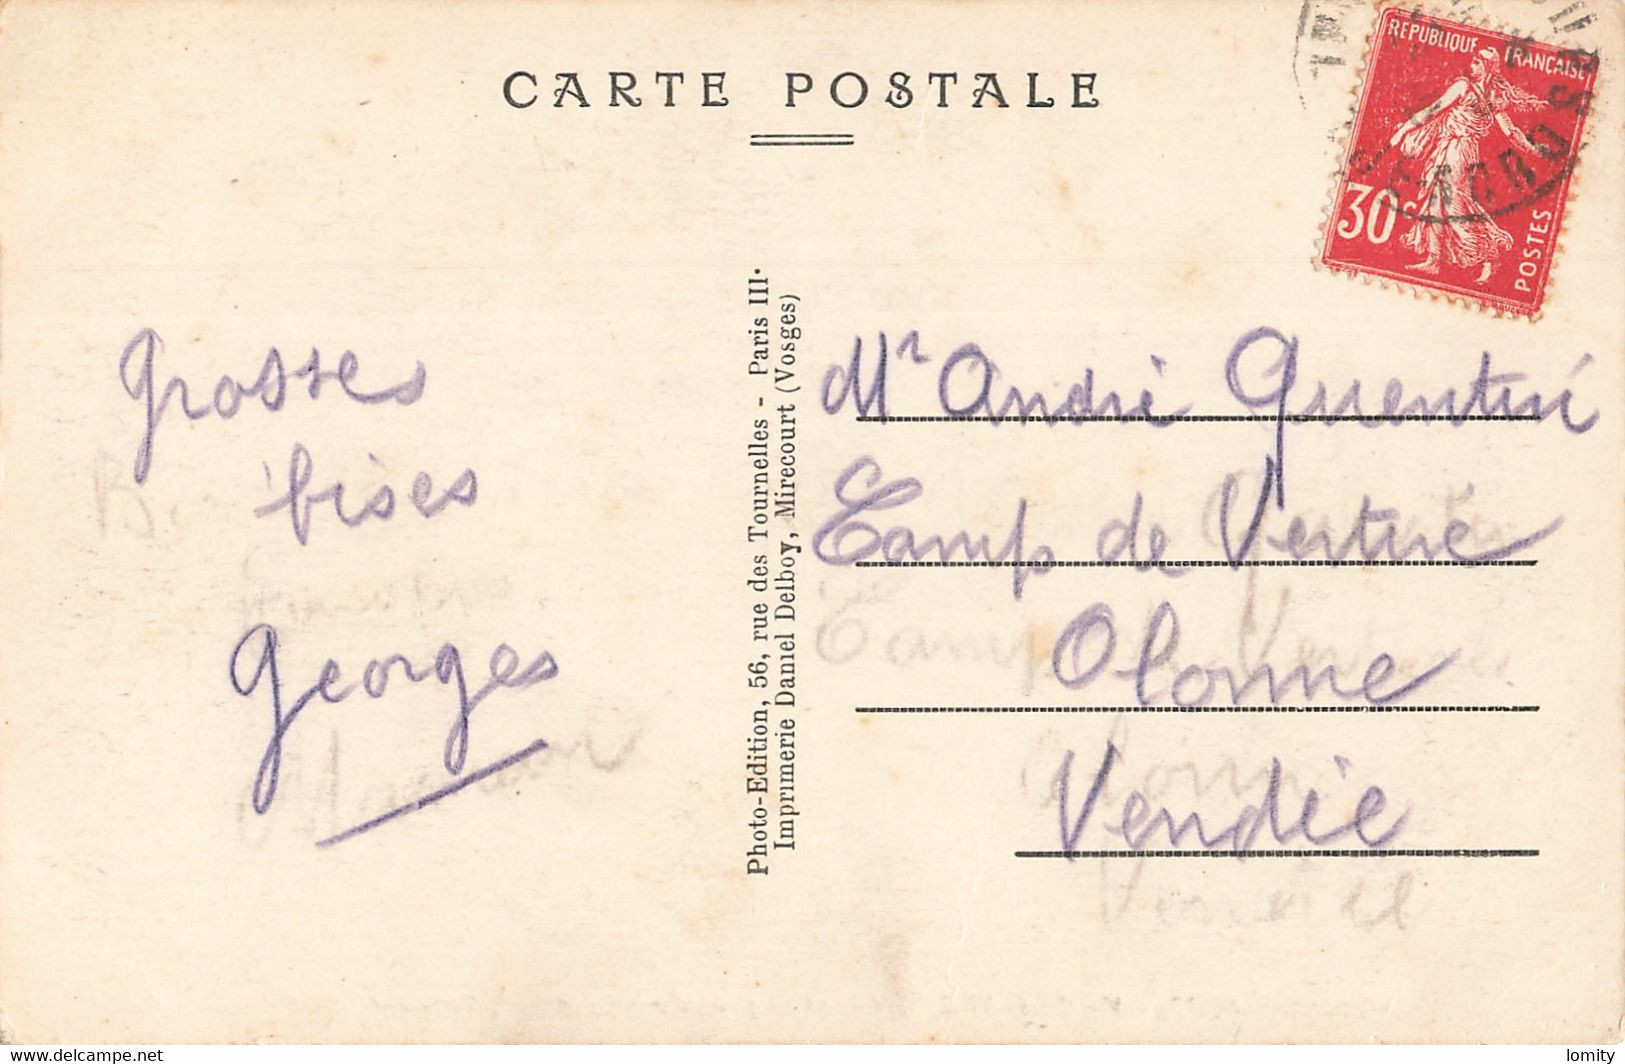 CARTE POSTALE
REPUBLIQUE FRANÇAISE
30 c
POSTES
Grosses
bises
Georges
Photo-Edition, 56, rue des Tournelles - Paris III.
Imprimerie Daniel Delboy, Mirecourt (Vosges)
Mr André Quentin
Camp de Vertué
Olonne
Vendée
www.delcampe.net
lomity